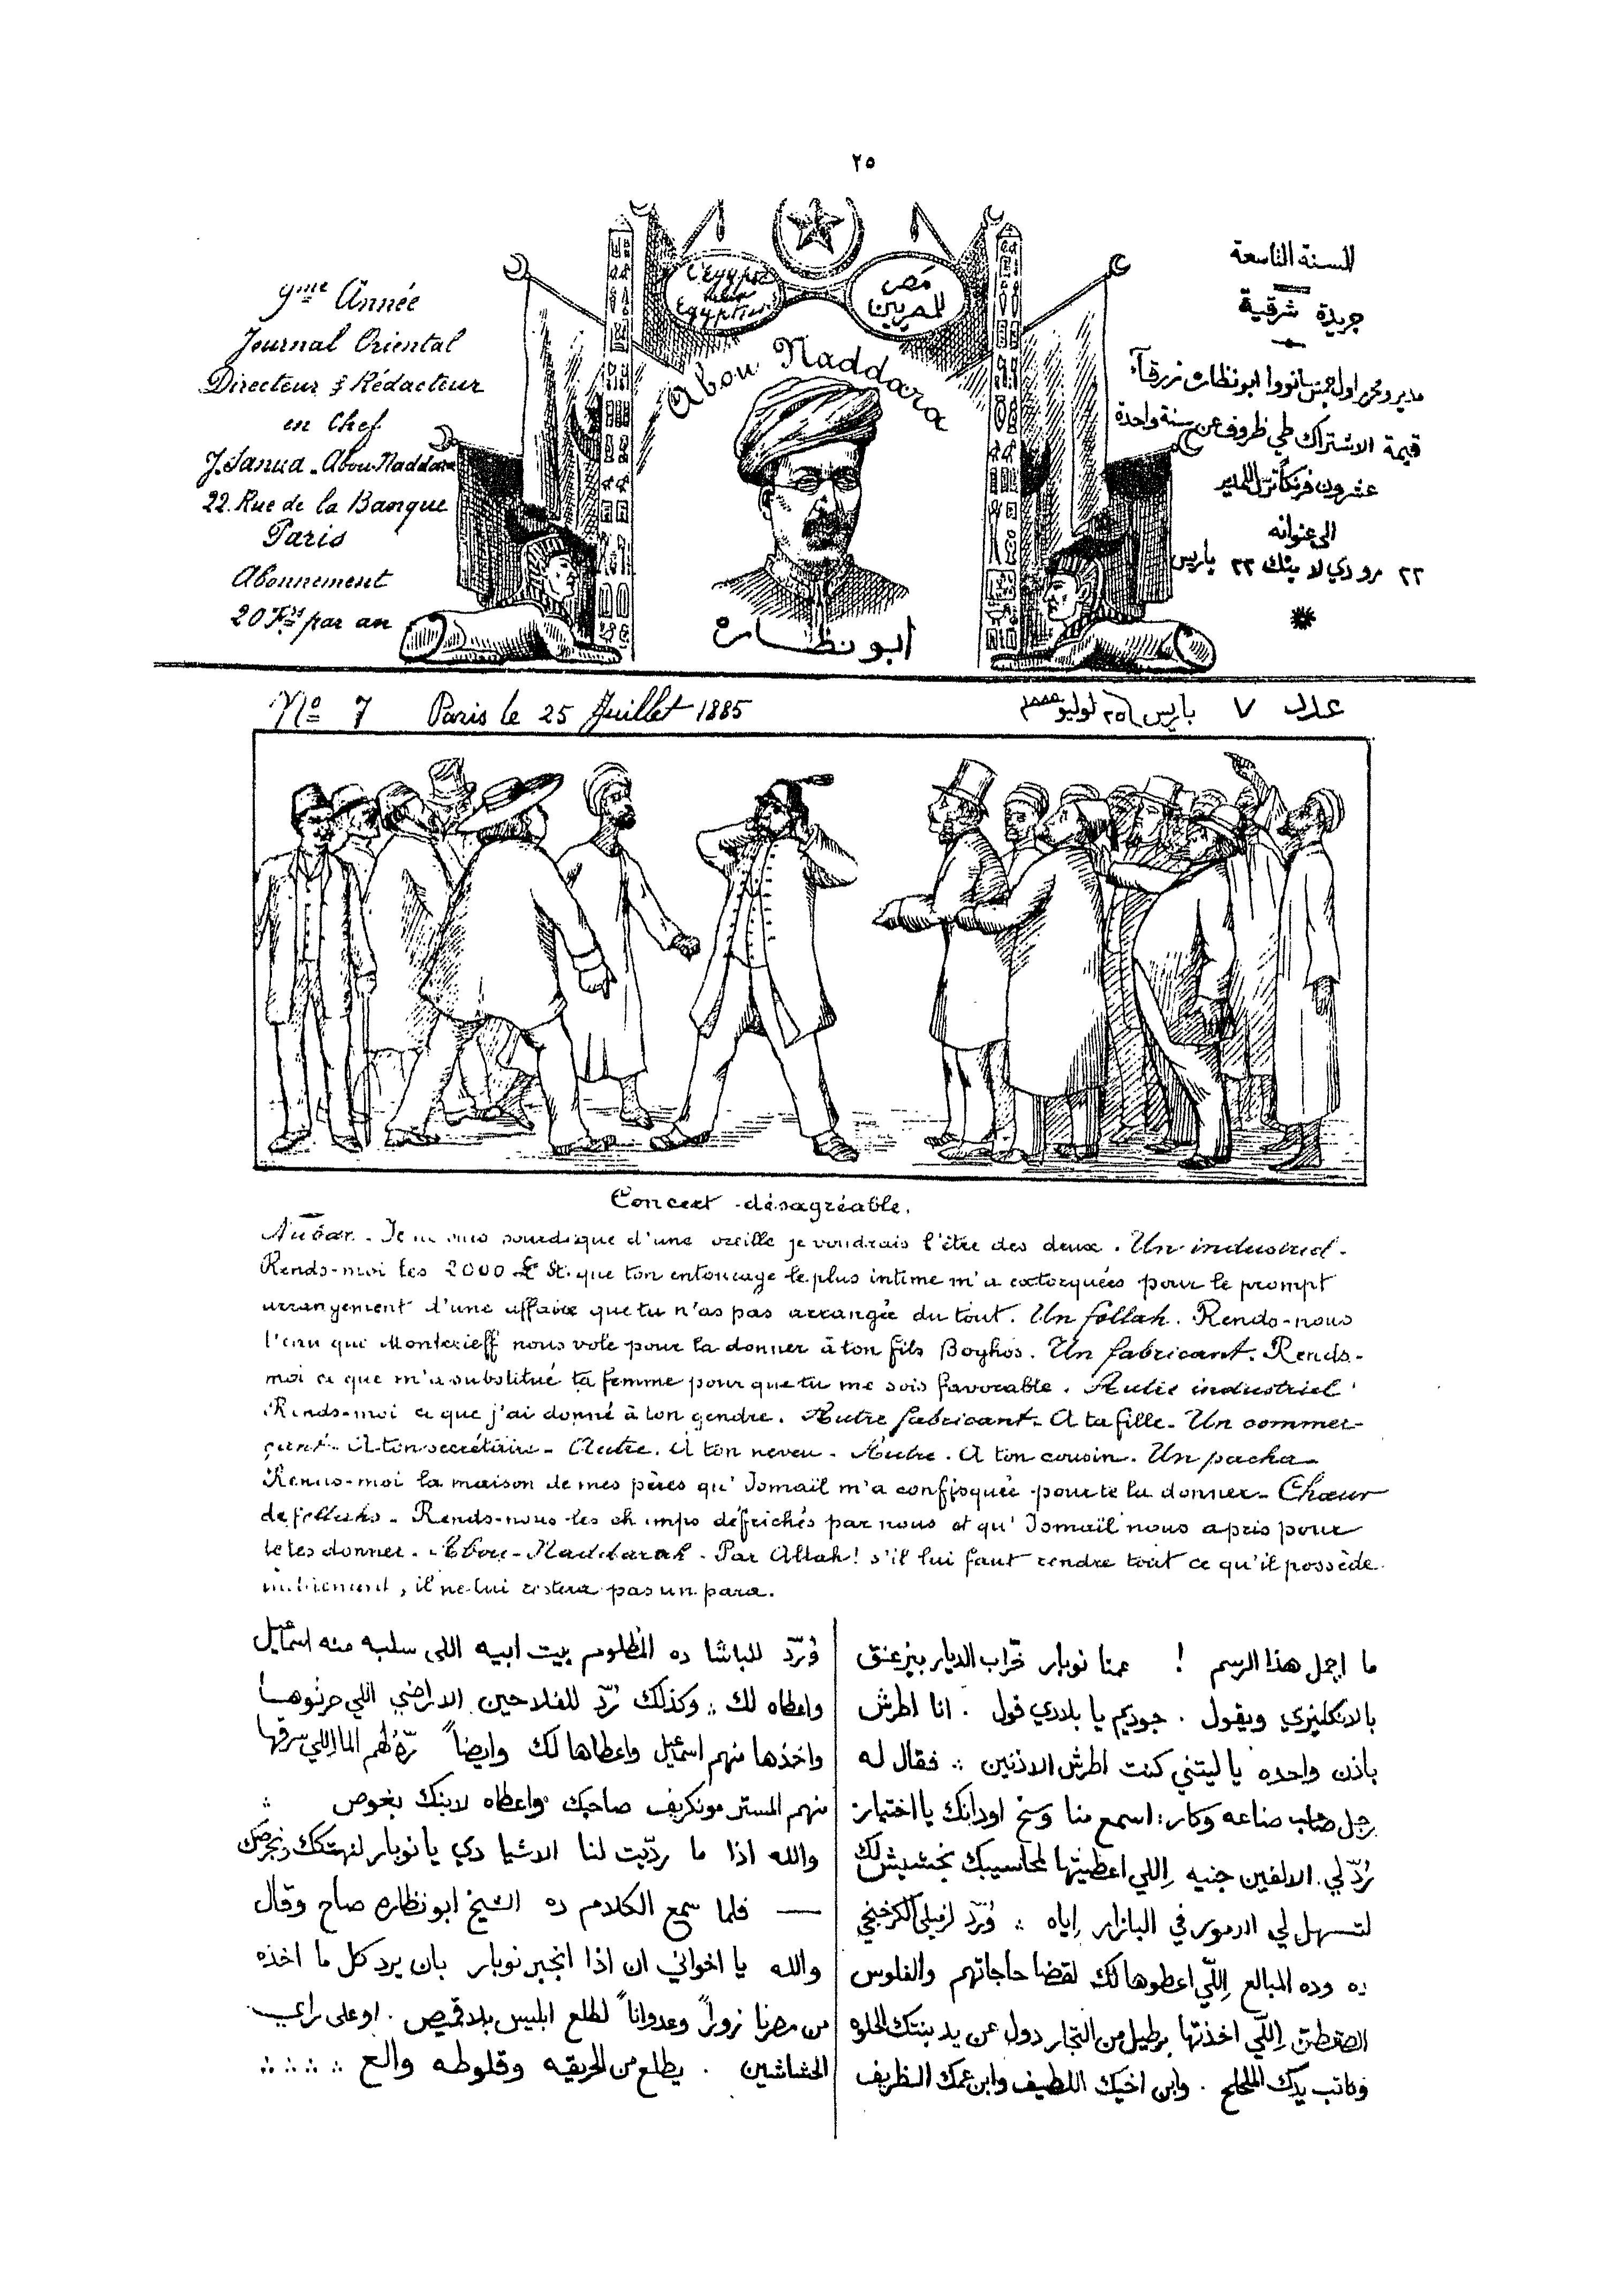 ٢٥
9me Année
Journal Oriental
Directeur & Rédacteur
en Chef
J. Sanua. Abou Naddara
22. Rue de la Banque
Paris
Abonnement
20 Frs par an
L'Egypte
Egyptiens
مصر
للمصريين
Abou Naddara
ابو نظاره
السنة التاسعة
جريدة شرقية
مدير ومحرر اول جمس سانووا ابو نظاره زرقآء
قيمة الاشتراك طي ظروف عن سنة واحدة
عشرون فرنكا ترسل للمدير
الى عنوانه
٢٢ رو دي لا بنك ٢٢ باريس
No 7 Paris le 25 Juillet 1885
عدد ٧ باريس ٢٥ لوليو ١٨٨٥
Concert désagréable.
Nubar. - Je ne suis sourd que d'une oreille je voudrais l'être des deux. Un industriel.
Rends-moi les 2000 £ St. que ton entourage le plus intime m'a extorquées pour le prompt
arrangement d'une affaire que tu n'as pas arrangée du tout. Un fellah. Rends-nous
l'eau que Montcrieff nous vole pour la donner à ton fils Boghos. Un fabricant. Rends-
moi ce que m'a substitué ta femme pour que tu me sois favorable. Autre industriel
Rends-moi ce que j'ai donné à ton gendre. Autre fabricant - A ta fille - Un commer-
çant - A ton secrétaire - Autre. A ton neveu - Autre. A ton cousin. Un pacha -
Rends-moi la maison de mes pères qu'Ismaïl m'a confisquée pour te la donner - Chœur
de fellahs - Rends-nous les champs défrichés par nous et qu'Ismaïl nous a pris pour
te les donner. - Abou-Naddarah - Par Allah! s'il lui faut rendre tout ce qu'il possède
, il ne lui restera pas un para.
ما اجمل هذا الرسم ! عمنا نوبار خرّاب الديار بيزعنق
بالانكليزي ويقول . جوديم يا بلادي فول . انا اطرش
باذن واحده يا ليتني كنت اطرش الاذنين ∴ فقال له
رجل صاحب صناعه وكار: اسمع منا وسخ اودانك يا اختيار
رُدّ لي الالفين جنيه اِللي اعطيتها لمحاسيبك بخشيش لك
لتسهل لي الامور في البازار اِياه ∴ وُرّد لزميلي الكرخنجي
ده وده المبالغ اِللّي اعطوها لك لقضا حاجاتهم والفلوس
اِللّي اخذتها برطيل من التجار دول عن يد بنتك الحلوه
وكاتب يدك الملحلح . وابن اخيك اللطيف وابن عمك الظريف
وُرّد للباشا ده المظلوم بيت ابيه اللى سلبه منه اسماعيل
واعطاه لك ∴ وكذلك رُدّ للفلاحين الاراضي اللي حرتوها
واخذها منهم اسماعيل واعطاها لك وايضاً رُدّ لهم الما اللي سرقها
منهم المستر مونكريف صاحبك واعطاه لابنك بغوص ∴
والله اذا ما ردّيت لنا الاشيا دي يا نوبار لنهتكك ونجرصك
— فلما سمع الكلام ده الشيخ ابو نظاره صاح وقال
والله يا اخواني ان اذا انجبر نوبار بان يرد كل ما اخذه
من مصرنا زوراً وعدواناً لطلع ابليس بلا قميص . او على راي
الحشاشين . يطلع من الحريقه وقلوطه والع ∴ ∴ ∴